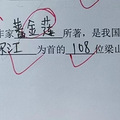 作家黄金莲所著,是我国
宋江为首的108位梁山